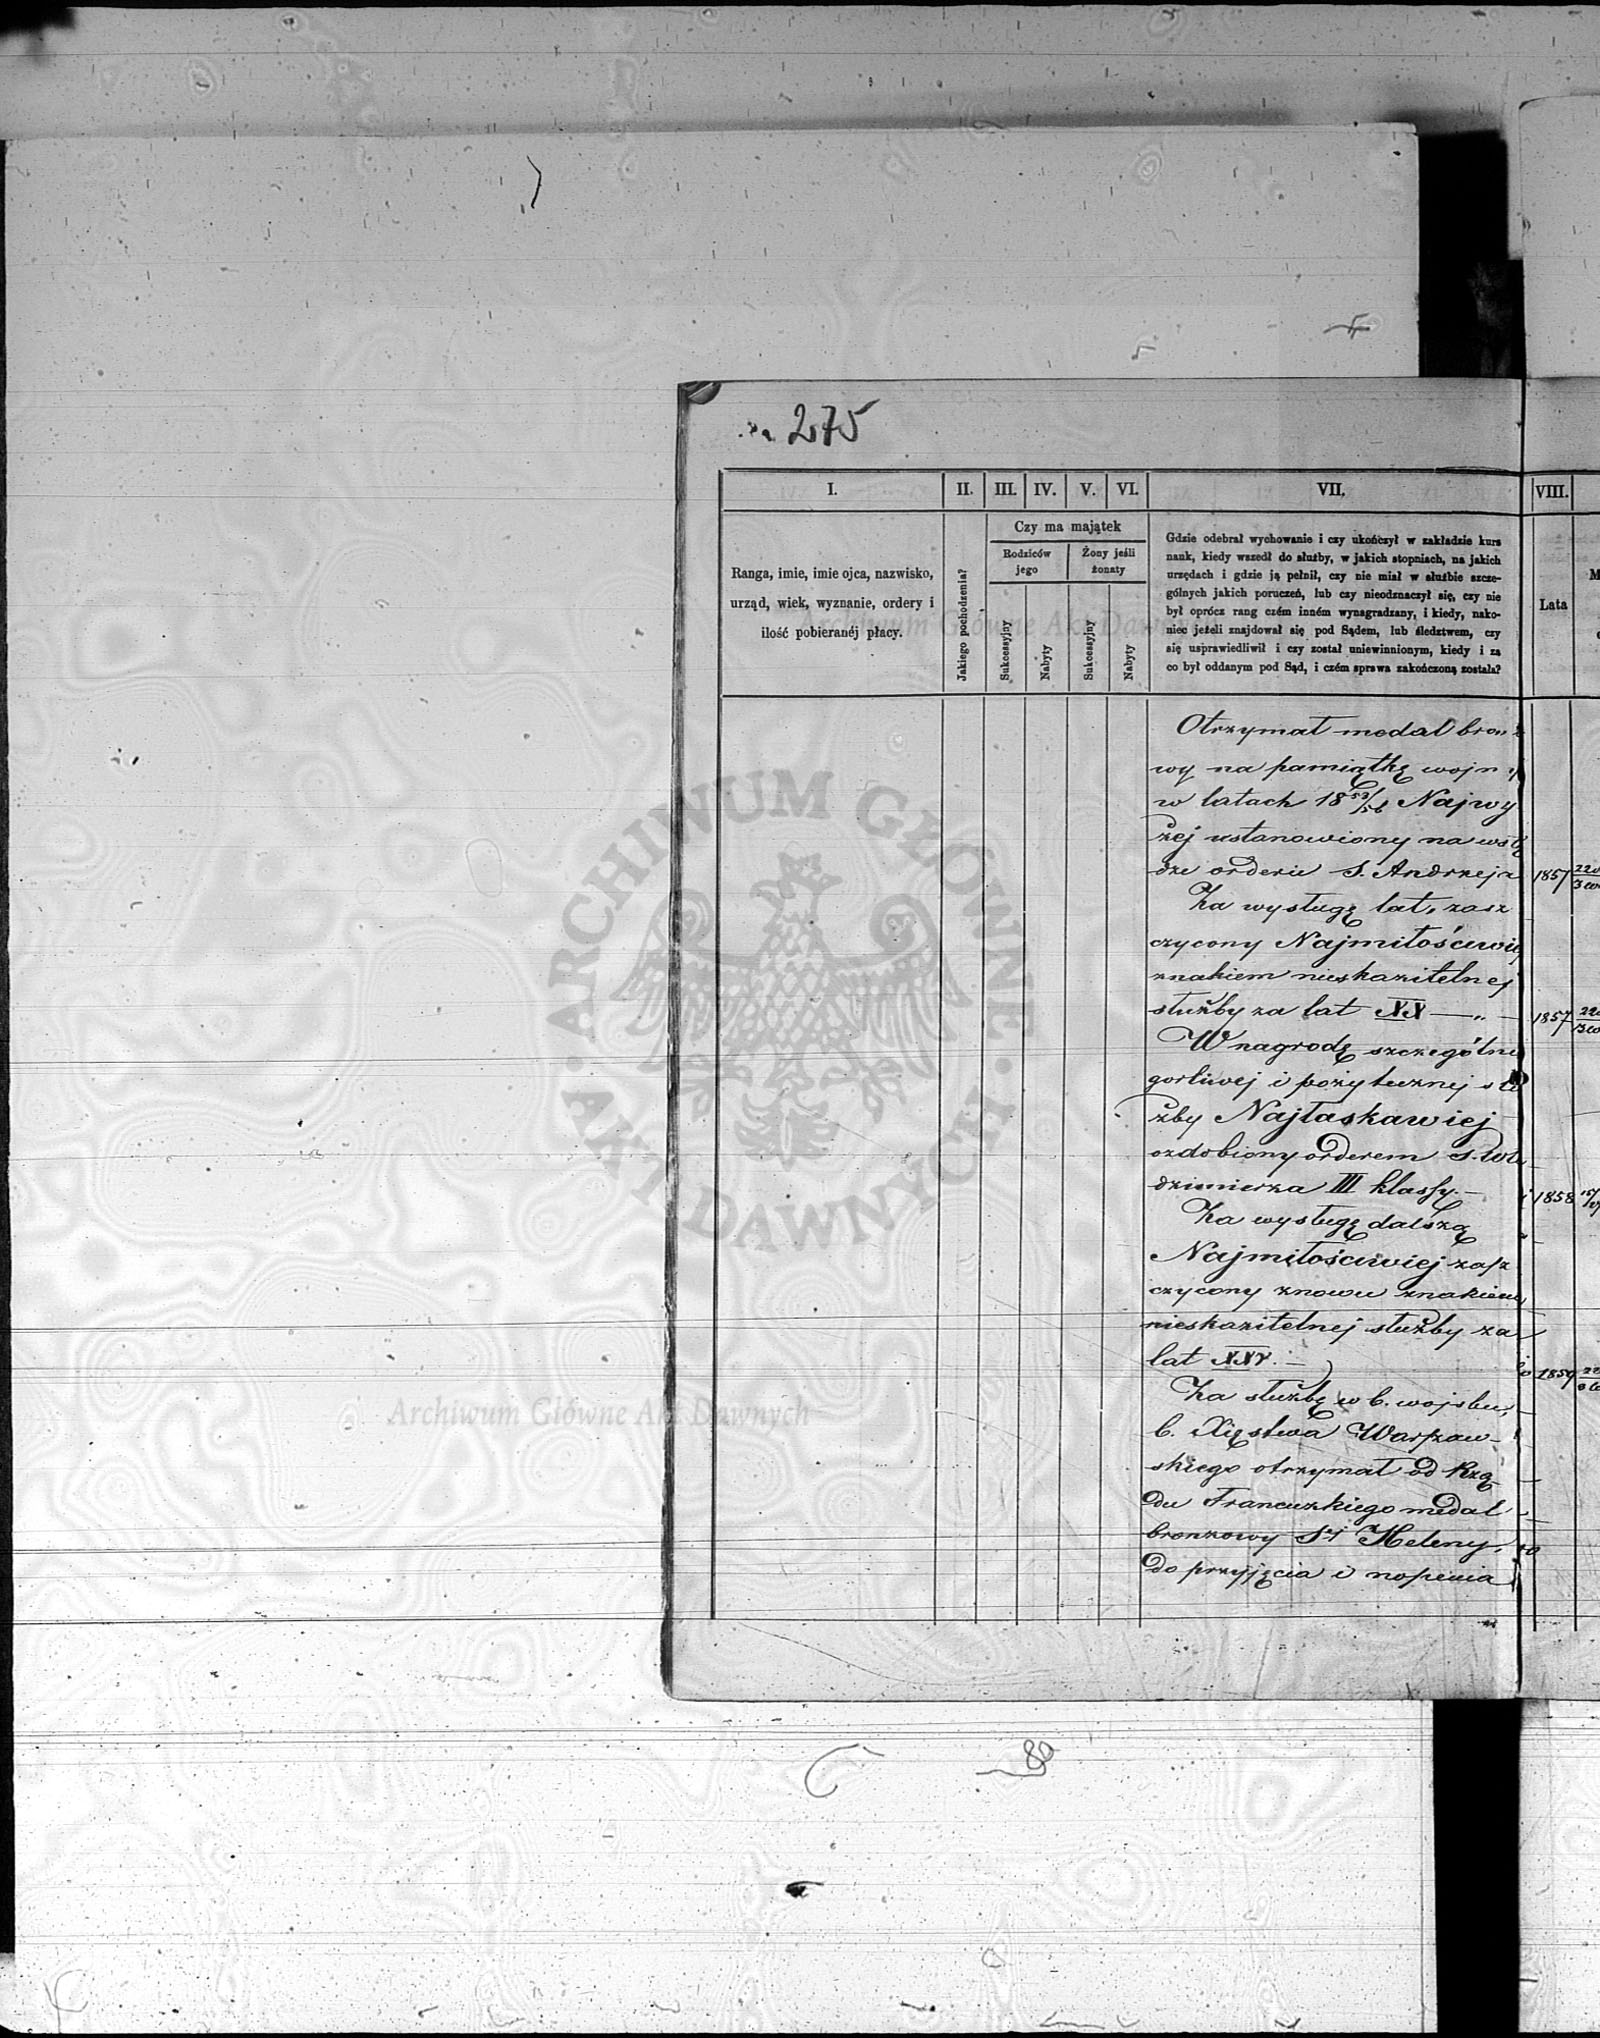 275
I.
II.
III.
IV.
V.
VI.
VII.
VIII.
Ranga, imie, imie ojca, nazwisko,
urząd, wiek, wyznanie, ordery i
ilość pobieranéj płacy.
Jakiego pochodzenia?
Czy ma majątek
Rodziców
jego
Żony jeśli
żonaty
Sukcessyjny
Nabyty
Sukcessyjny
Nabyty
Gdzie odebrał wychowanie i czy ukończył w zakładzie kurs
nauk, kiedy wszedł do służby, w jakich stopniach, na jakich
urzędach i gdzie ją pełnił, czy nie miał w służbie szcze-
gólnych jakich poruczeń, lub czy nieodznaczył się, czy nie
był oprócz rang czém inném wynagradzany, i kiedy, nako-
niec jeżeli znajdował się pod Sądem, lub śledztwem, czy
się usprawiedliwił i czy został uniewinnionym, kiedy i za
co był oddanym pod Sąd, i czém sprawa zakończoną została?
Lata
M
Otrzymał medal bron
wy na pamiątkę wojny
w latach 18 53/56 Najwy
żej ustanowiony na wstę
dze orderu S. Andrzeja 1857
Za wysługę lat, zasz
czycony Najmiłościwiej
znakiem nieskazitelnej
służby za lat XX — „ — 1857
W nagrodę szczególne
gorliwej i pożytecznej słu
żby Najłaskawiej
ozdobiony orderem S. Wło
dzimierza III klassy. — 1858
Za wysługę dalszą
Najmiłościwiej zasz
czycony znowu znakiem
nieskazitelnej służby za
lat XXV. — 1859
Za służbę w b. wojsku,
b. Xięstwa Warszaw-
skiego otrzymał od Rzą-
du Francuzkiego medal
bronzowy Stej Heleny,
do przyjęcia i noszenia
ARCHIWUM GŁÓWNE · AKT DAWNYCH ·
Archiwum Główne Akt Dawnych
Archiwum Główne Akt Dawnych